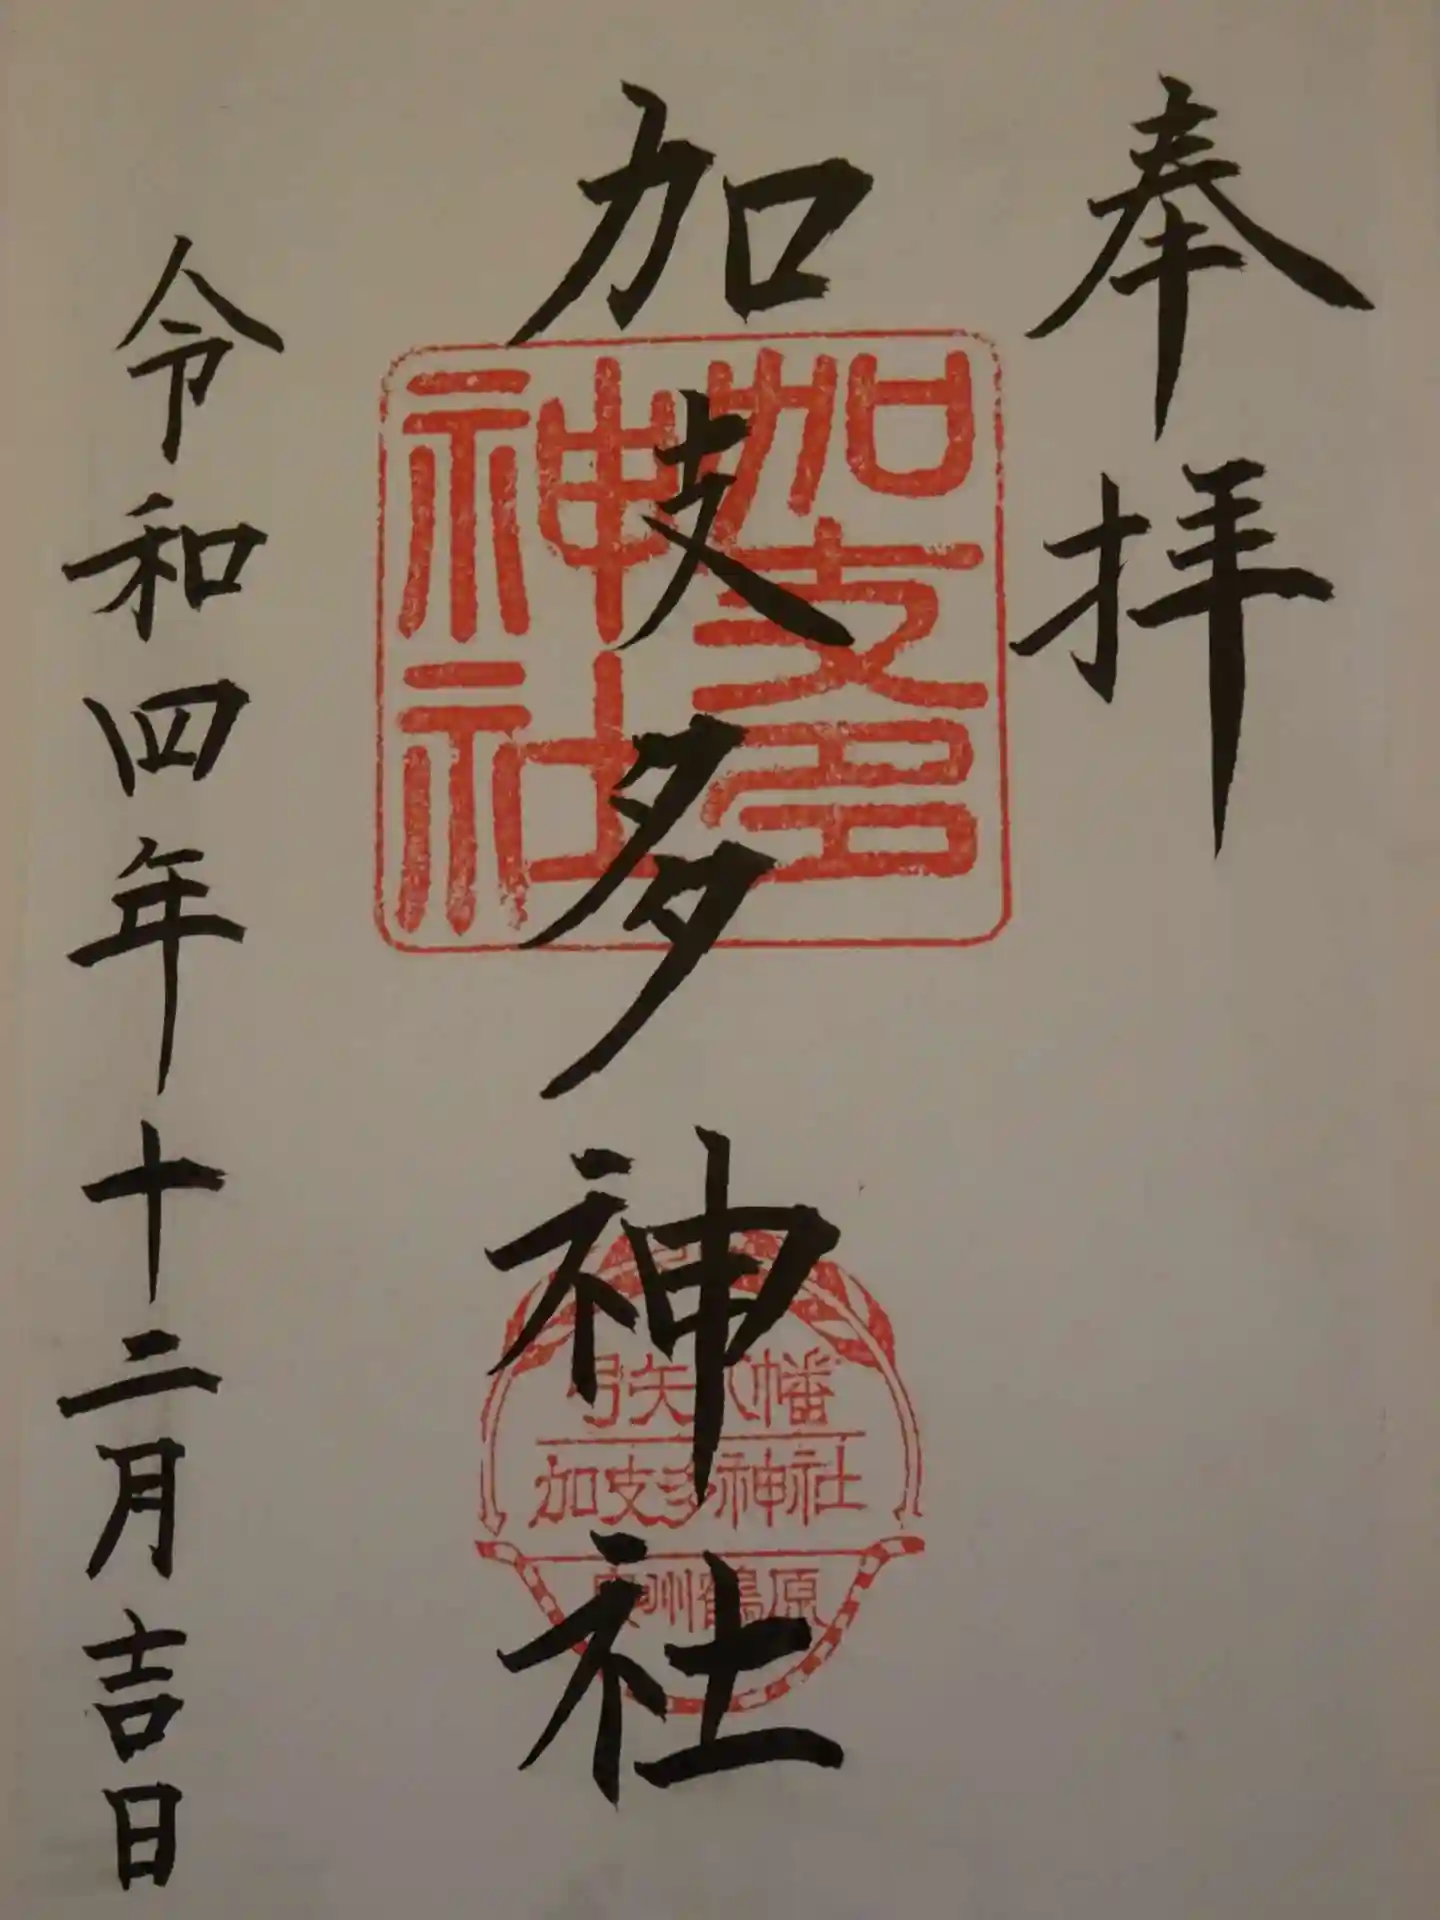 奉拝
加支多神社
加支多
神社
弓矢八幡
加支多神社
奥州鶴原
令和四年十二月吉日